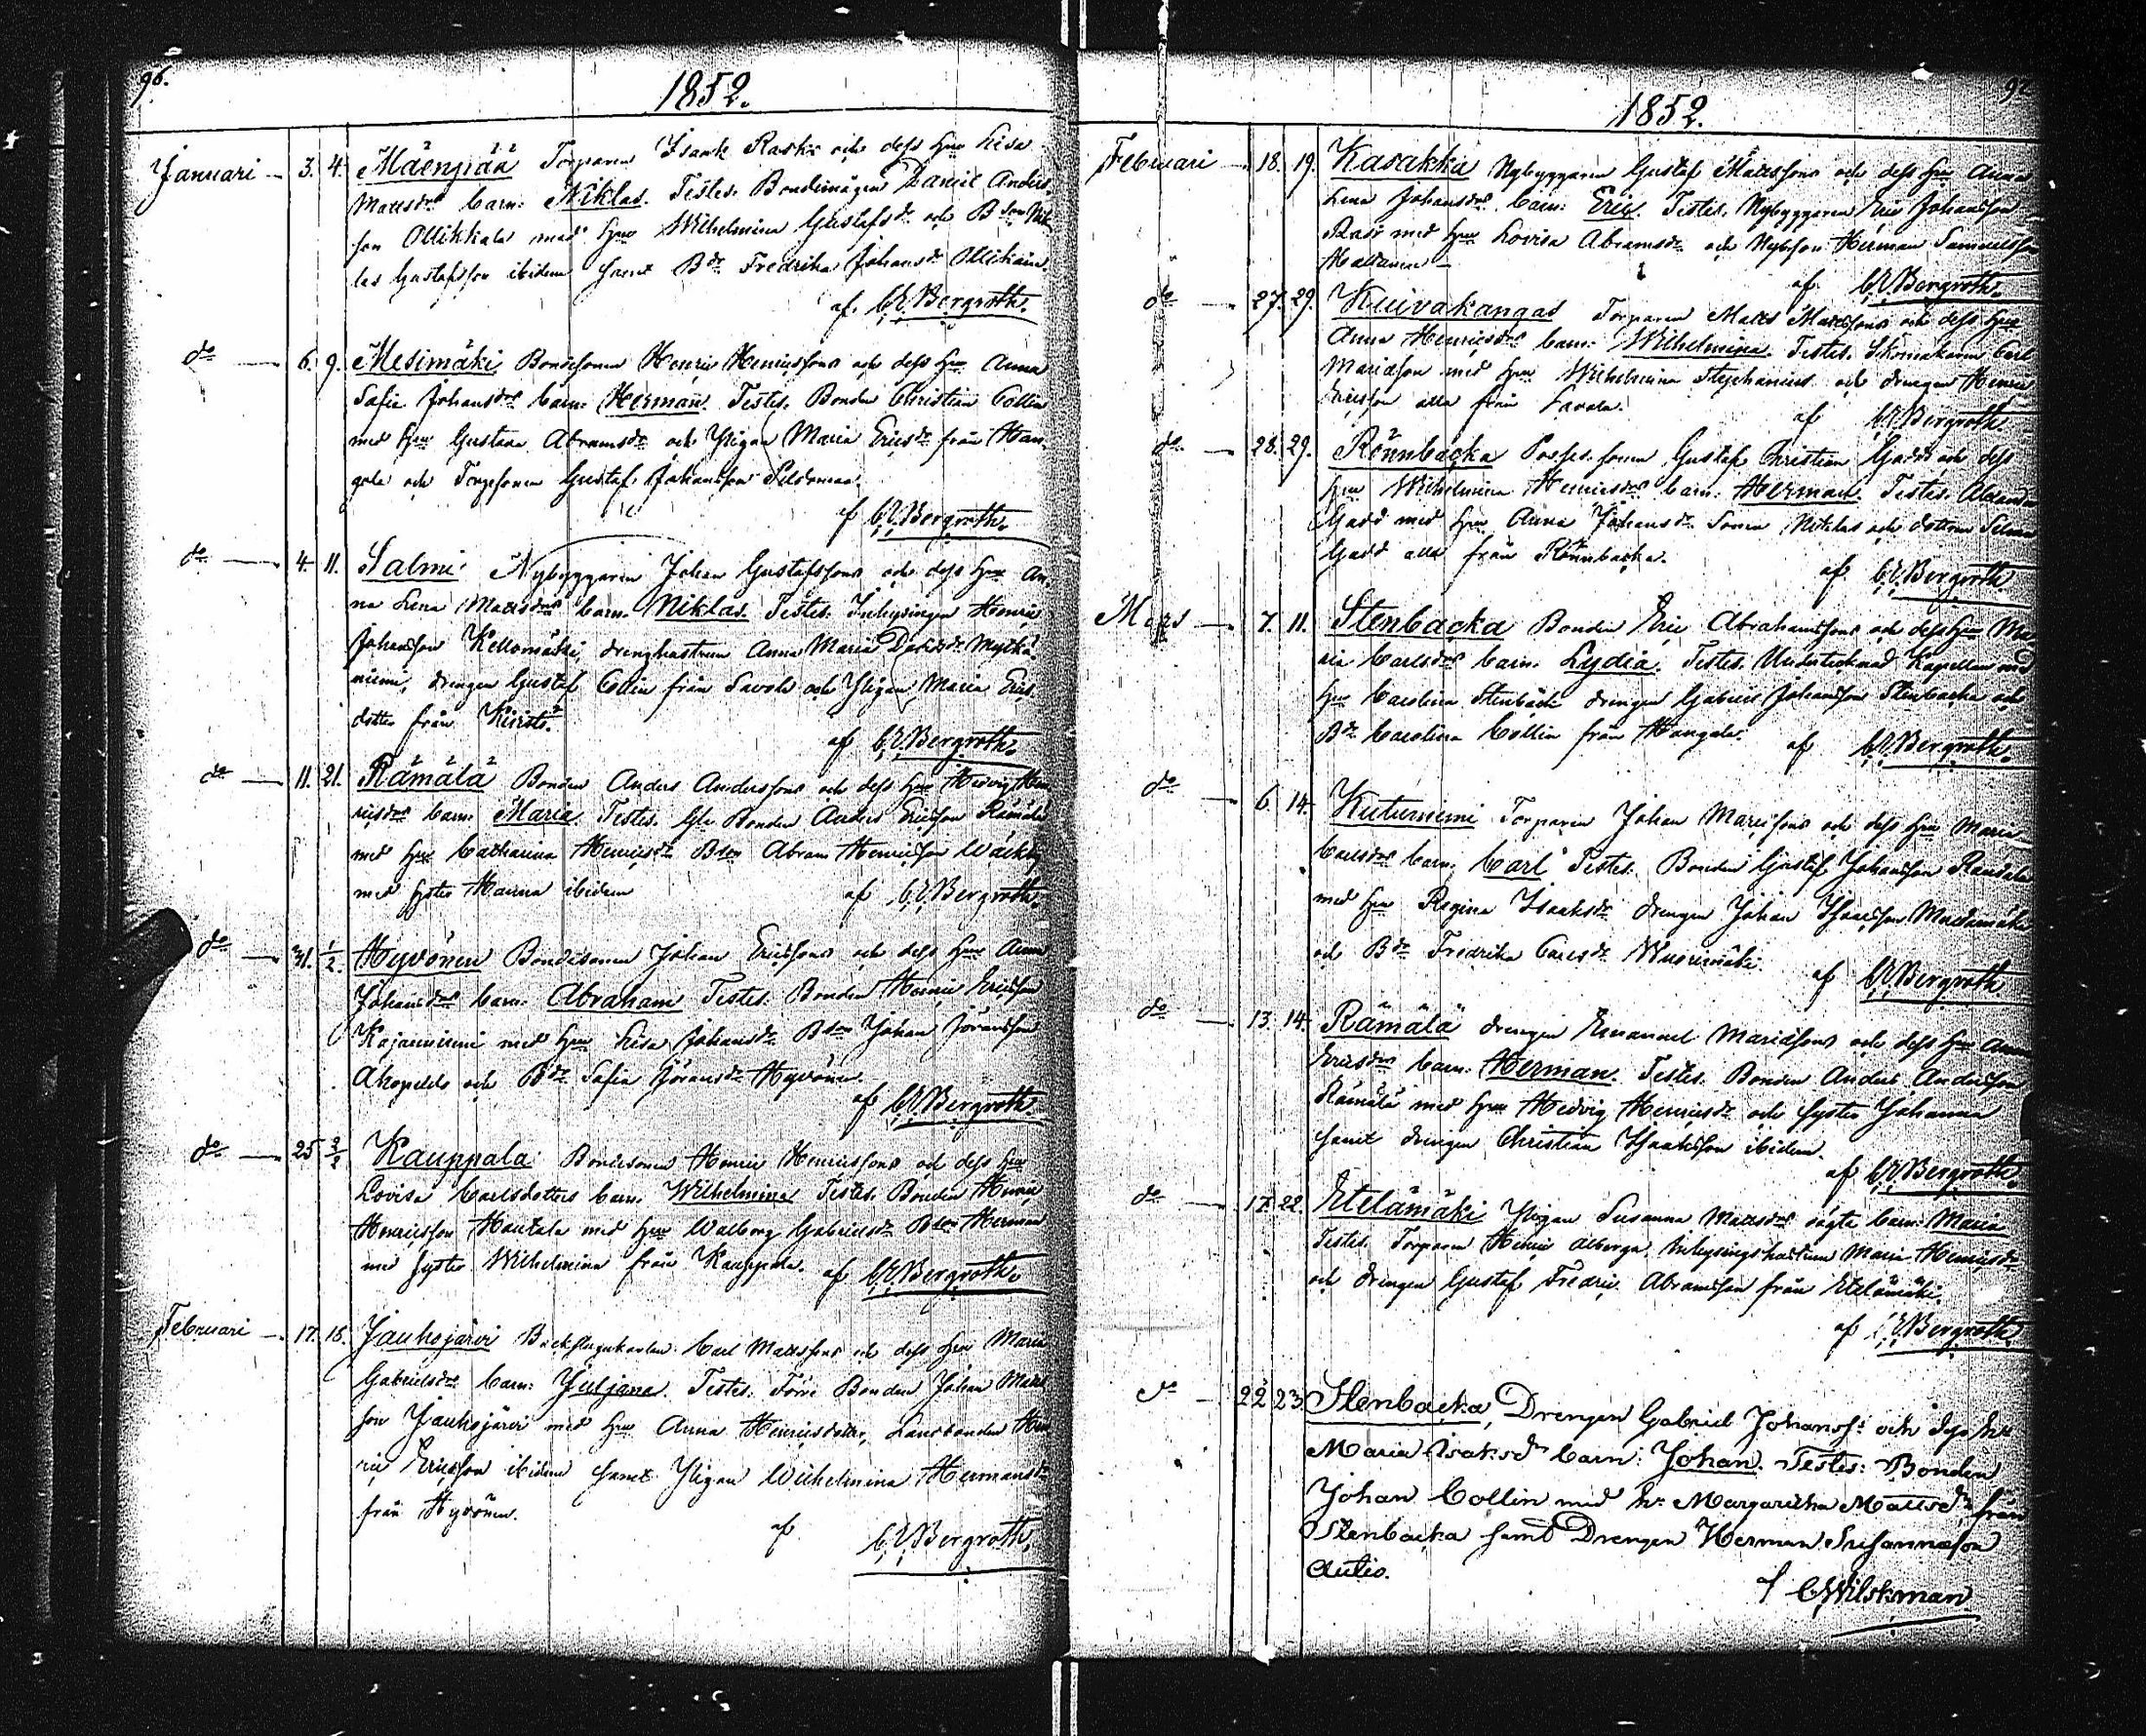 96.
1852.
Januari 3. 4. Mäenpää Torparen Isaak Rask och dess Hru Lisa
Mattsdrs barn: Niklas. Testes. Bondemågen Daniel Anders
son Ollikkala med Hru Wilhelmina Gustafsdr och Bson Nik
las Gustafsson ibidem samt Bdr Fredrika Johansdr Ollikain.
af. C.E. Bergroth.
do 6. 9. Mesimäki Bondesonen Henric Henricssons och dess Hru Anna
Sofia Johansdrs barn: Herman. Testes. Bonden Christian Collin
med Hru Gustava Abramsdr och Pigan Maria Ericsdr från Han
gola och Torpsonen Gustaf Johansson
af C.E. Bergroth.
do 4. 11. Salmi Nybyggaren Johan Gustafssons och dess Hru An
na Lena Mattsdrs barn. Niklas. Testes. Inhysingen Henric
Johansson Kellomäki, drenghustrun Anna Maria Davidsdr
niemi, drengen Gustaf Collin från Savola och Pigan Maria Erics
dotter från
af C.E. Bergroth.
do 11. 21. Rämälä Bonden Anders Anderssons och dess Hru Hedvig Hen
ricsdrs barn: Maria. Testes. Gle Bonden Anders Ericsson Rämälä
med Hru Catharina Henricsdr Bson Abram Henricsson
med Syster Hanna ibidem af C.E. Bergroth.
do 31. 1/2. Hyvönen Bondesonen Johan Ericssons och dess Hru Anna
Johansdrs barn: Abraham Testes. Bonden Henric Ericsson
Kajanniemi med Hru Lisa Johansdr Bson Johan Jöransson
Akopelto och Bdr Sofia Göransdr Hyvönen.
af C.E. Bergroth
do 25 2/2 Kauppala Bondesonen Henric Henricssons och dess Hru
Lovisa Carlsdotters barn: Wilhelmina Testes. Bonden Henric
Henricsson Hautala med Hru Walborg Gabrielsdr Bson Herman
med Syster Wilhelmina från Kauppala. af C.E. Bergroth.
Februari 17. 18. Jauhojärvi Backstugukarlen Carl Mattssons och dess Hru Maria
Gabrielsdrs barn: Juljana. Testes. Förre Bonden Johan Matts
son Jauhojärvi med Hru Anna Henricsdotter, Landbonden Hen
ric Ericsson ibidem samt Pigan Wilhelmina Hermansdr
från Hyvönen.
af C.E. Bergroth.
97
1852.
Februari 18. 19. Kasakka Nybyggaren Gustaf Mattssons och dess Hru Anna
Lena Johansdrs barn: Eric. Testes. Nybyggaren Eric Johansson
med Hru Lovisa Abramsdr och Nybson Herman Samuelsson
af C.E. Bergroth.
do 27. 29. Kuivakangas Torparen Matts Mattssons och dess Hru
Anna Henricsdrs barn: Wilhelmina. Testes. Skomakaren Carl
Mariason med Hru Wilhelmina Stephanius och drengen Henric
Ericsson alla från Savola.
af C.E. Bergroth
do 28. 29. Rönnbacka Posses. sonen Gustaf Christian Gadds och dess
Hru Wilhelmina Henricsdrs barn: Herman. Testes.
Gadd med Hru Anna Johansdr Sonen Niklas och dottren Selma
Gadd alla från Rönnbacka.
af C.E. Bergroth
Mars 7. 11. Stenbacka Bonden Eric Abrahamssons och dess Hru Ma
ria Carlsdrs barn: Lydia. Testes. Undertecknad Kapellan med
Hru Carolina Stenbäck drengen Gabriel Johansson Stenbacka och
Bdr Carolina Collin från Hangola. af C.E. Bergroth.
do 6. 14. Kutuniemi Torparen Johan Mariasons och dess Hru Maria
Carlsdrs barn: Carl Testes. Bonden Gustaf Johansson
med Hru Regina Isaaksdr drengen Johan Isaacsson
och Bdr Fredrika Carlsdr Wuorimäki. af C.E. Bergroth
do 13. 14. Rämälä drengen Emanuel Mariasons och dess Hru Anna
Ericsdrs barn: Herman. Testes. Bonden Anders Andersson
Rämälä med Hru Hedvig Henricsdr och Syster Johanna
samt drengen Christian Isaaksson ibidem.
af C.E. Bergroth.
do 17. 22. Etelämäki Pigan Susanna Mattsdrs oägta barn: Maria
Testes. Torparen Henric Alberga, Inhysingshustrun Maria Henricsdr
och drengen Gustaf Fredric Abramsson från Etelämäki.
af C.E. Bergroth
do 22 23 Stenbacka, Drengen Gabriel Johanss: och dess hu
Maria Isaksdr barn: Johan. Testes: Bonden
Johan Collin med hu Margaretha Mattsdr från
Stenbacka samt Drengen Herman Susannason
Autio.
af C Wilskman